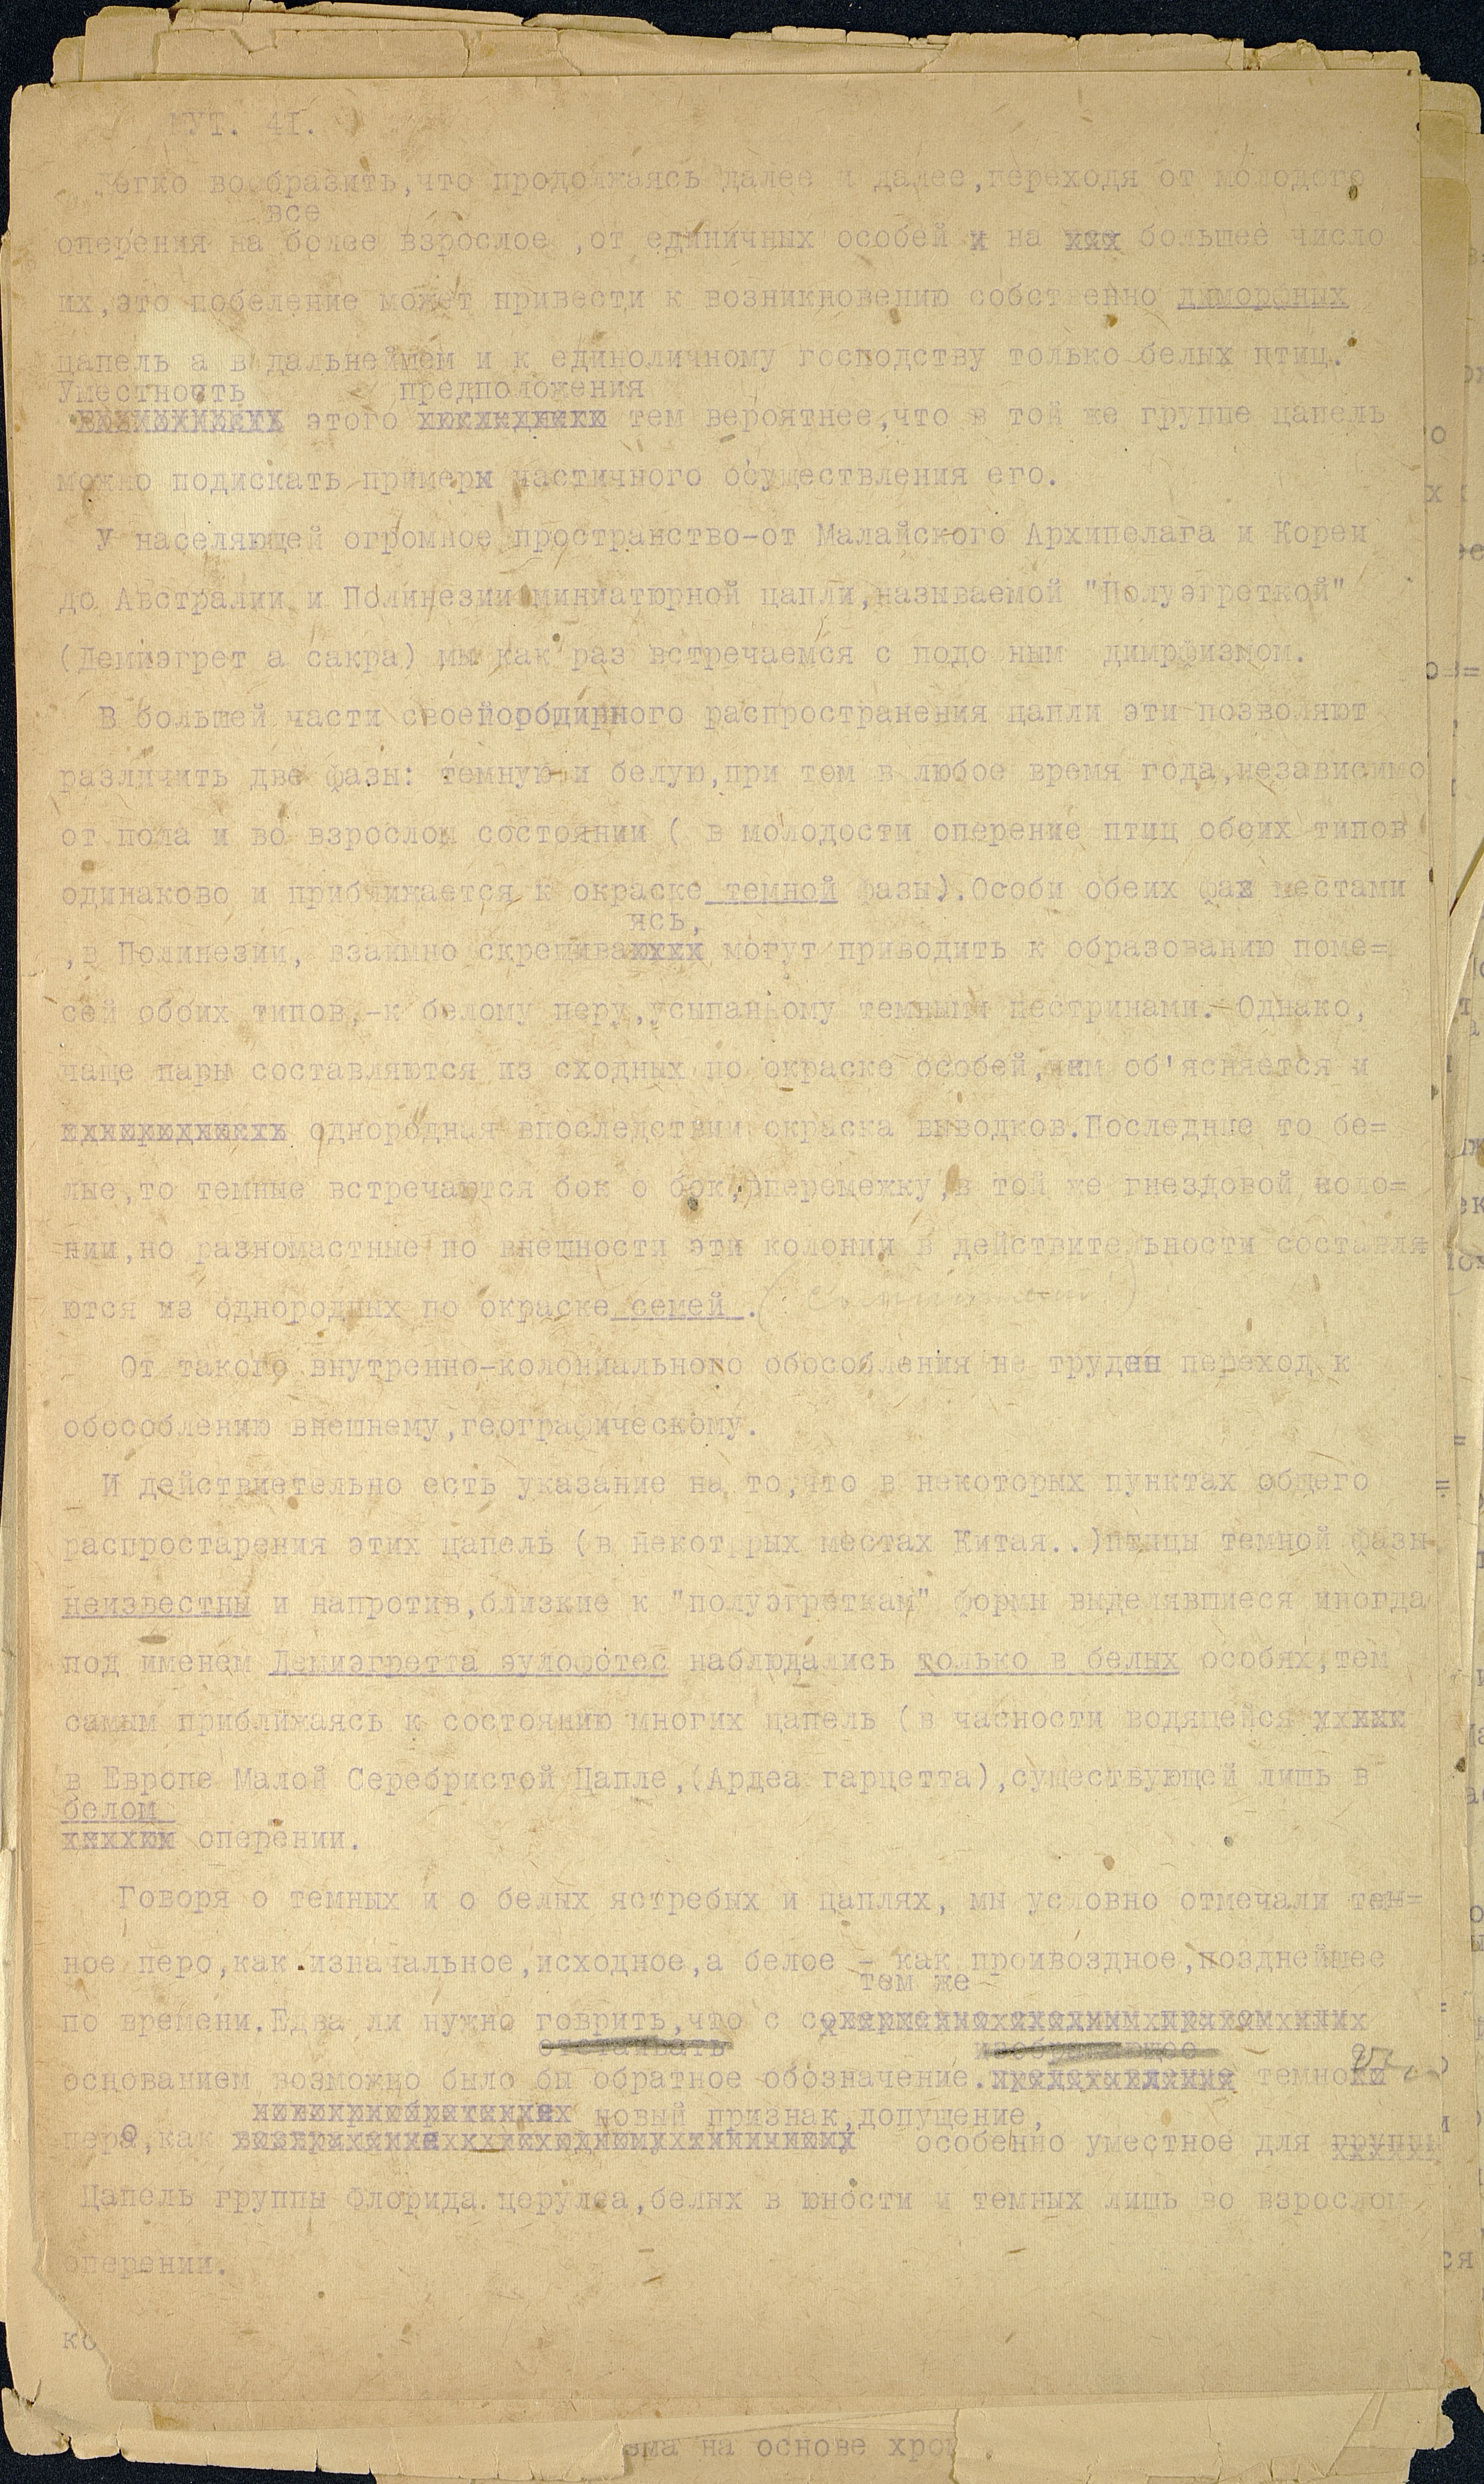 МУТ. 41.
Легко вообразить,что продолжаясь далее и далее,переходя от молодого
все
оперения на более взрослое ,от единичных особей и на ххх большее число
их,это побеление может привести к возникновению собственно диморфных
цапель а в дальнейшем и к единоличному господству только белых птиц.
Уместность предположения
этого тем вероятнее,что в той же группе цапель
можно подискать примеры частичного осуществления его.
У населяющей огромное пространство-от Малайского Архипелага и Кореи
до Австралии и Полинезии миниатюрной цапли,называемой "Полуэгреткой"
(Демиэгрет а сакра) мы как раз встречаемся с подо ным димрфизмом.
В большей части своей распространения цапли эти позволяют
различить две фазы: темную и белую,при том в любое время года,независимо
от пола и во взрослом состоянии ( в молодости оперение птиц обоих типов
одинаково и приближается к окраске темной фазы).Особи обеих фаз местами
ясь,
,в Полинезии, взаимно скрещиваюхххх могут приводить к образованию поме=
сей обоих типов,-к белому перу,усыпанному темными пестринами. Однако,
чаще пары составляются из сходных по окраске особей,чем об'ясняется и
однородная впоследствии окраска выводков.Последние то бе=
лые,то темные встречаются бок о бок, вперемежку,в той же гнездовой коло=
нии,но разномастные по внешности эти колонии в действительности составля
ются из однородных по окраске семей .
От такого внутренно-колониального обособления не труден переход к
обособлению внешнему,географическому.
И действиетельно есть указание на то,что в некоторых пунктах общего
распростарения этих цапель (в некот рых местах Китая..)птицы темной фазы
неизвестны и напротив,близкие к "полуэгреткам" формы выделявшиеся иногда
под именем Демиэгретта эулофотес наблюдались только в белых особях,тем
самым приближаясь к состоянию многих цапель (в часности водящейся
в Европе Малой Серебристой Цапле,(Ардеа гарцетта),существующей лишь в
белом
оперении.
Говоря о темных и о белых ястребых и цаплях, мы условно отмечали тем=
ное перо,как изначальное,исходное,а белое - как проивоздное,позднейшее
тем же
по времени.Едва ли нужно говрить,что с
отстаивать изображающее
основанием возможно было бы обратное обозначение. темного
новый признак,допущение,
перо,как особенно уместное для группы
Цапель группы Флорида церулеа,белых в юности и темных лишь во взрослом
оперении.
ко
ема на основе хром